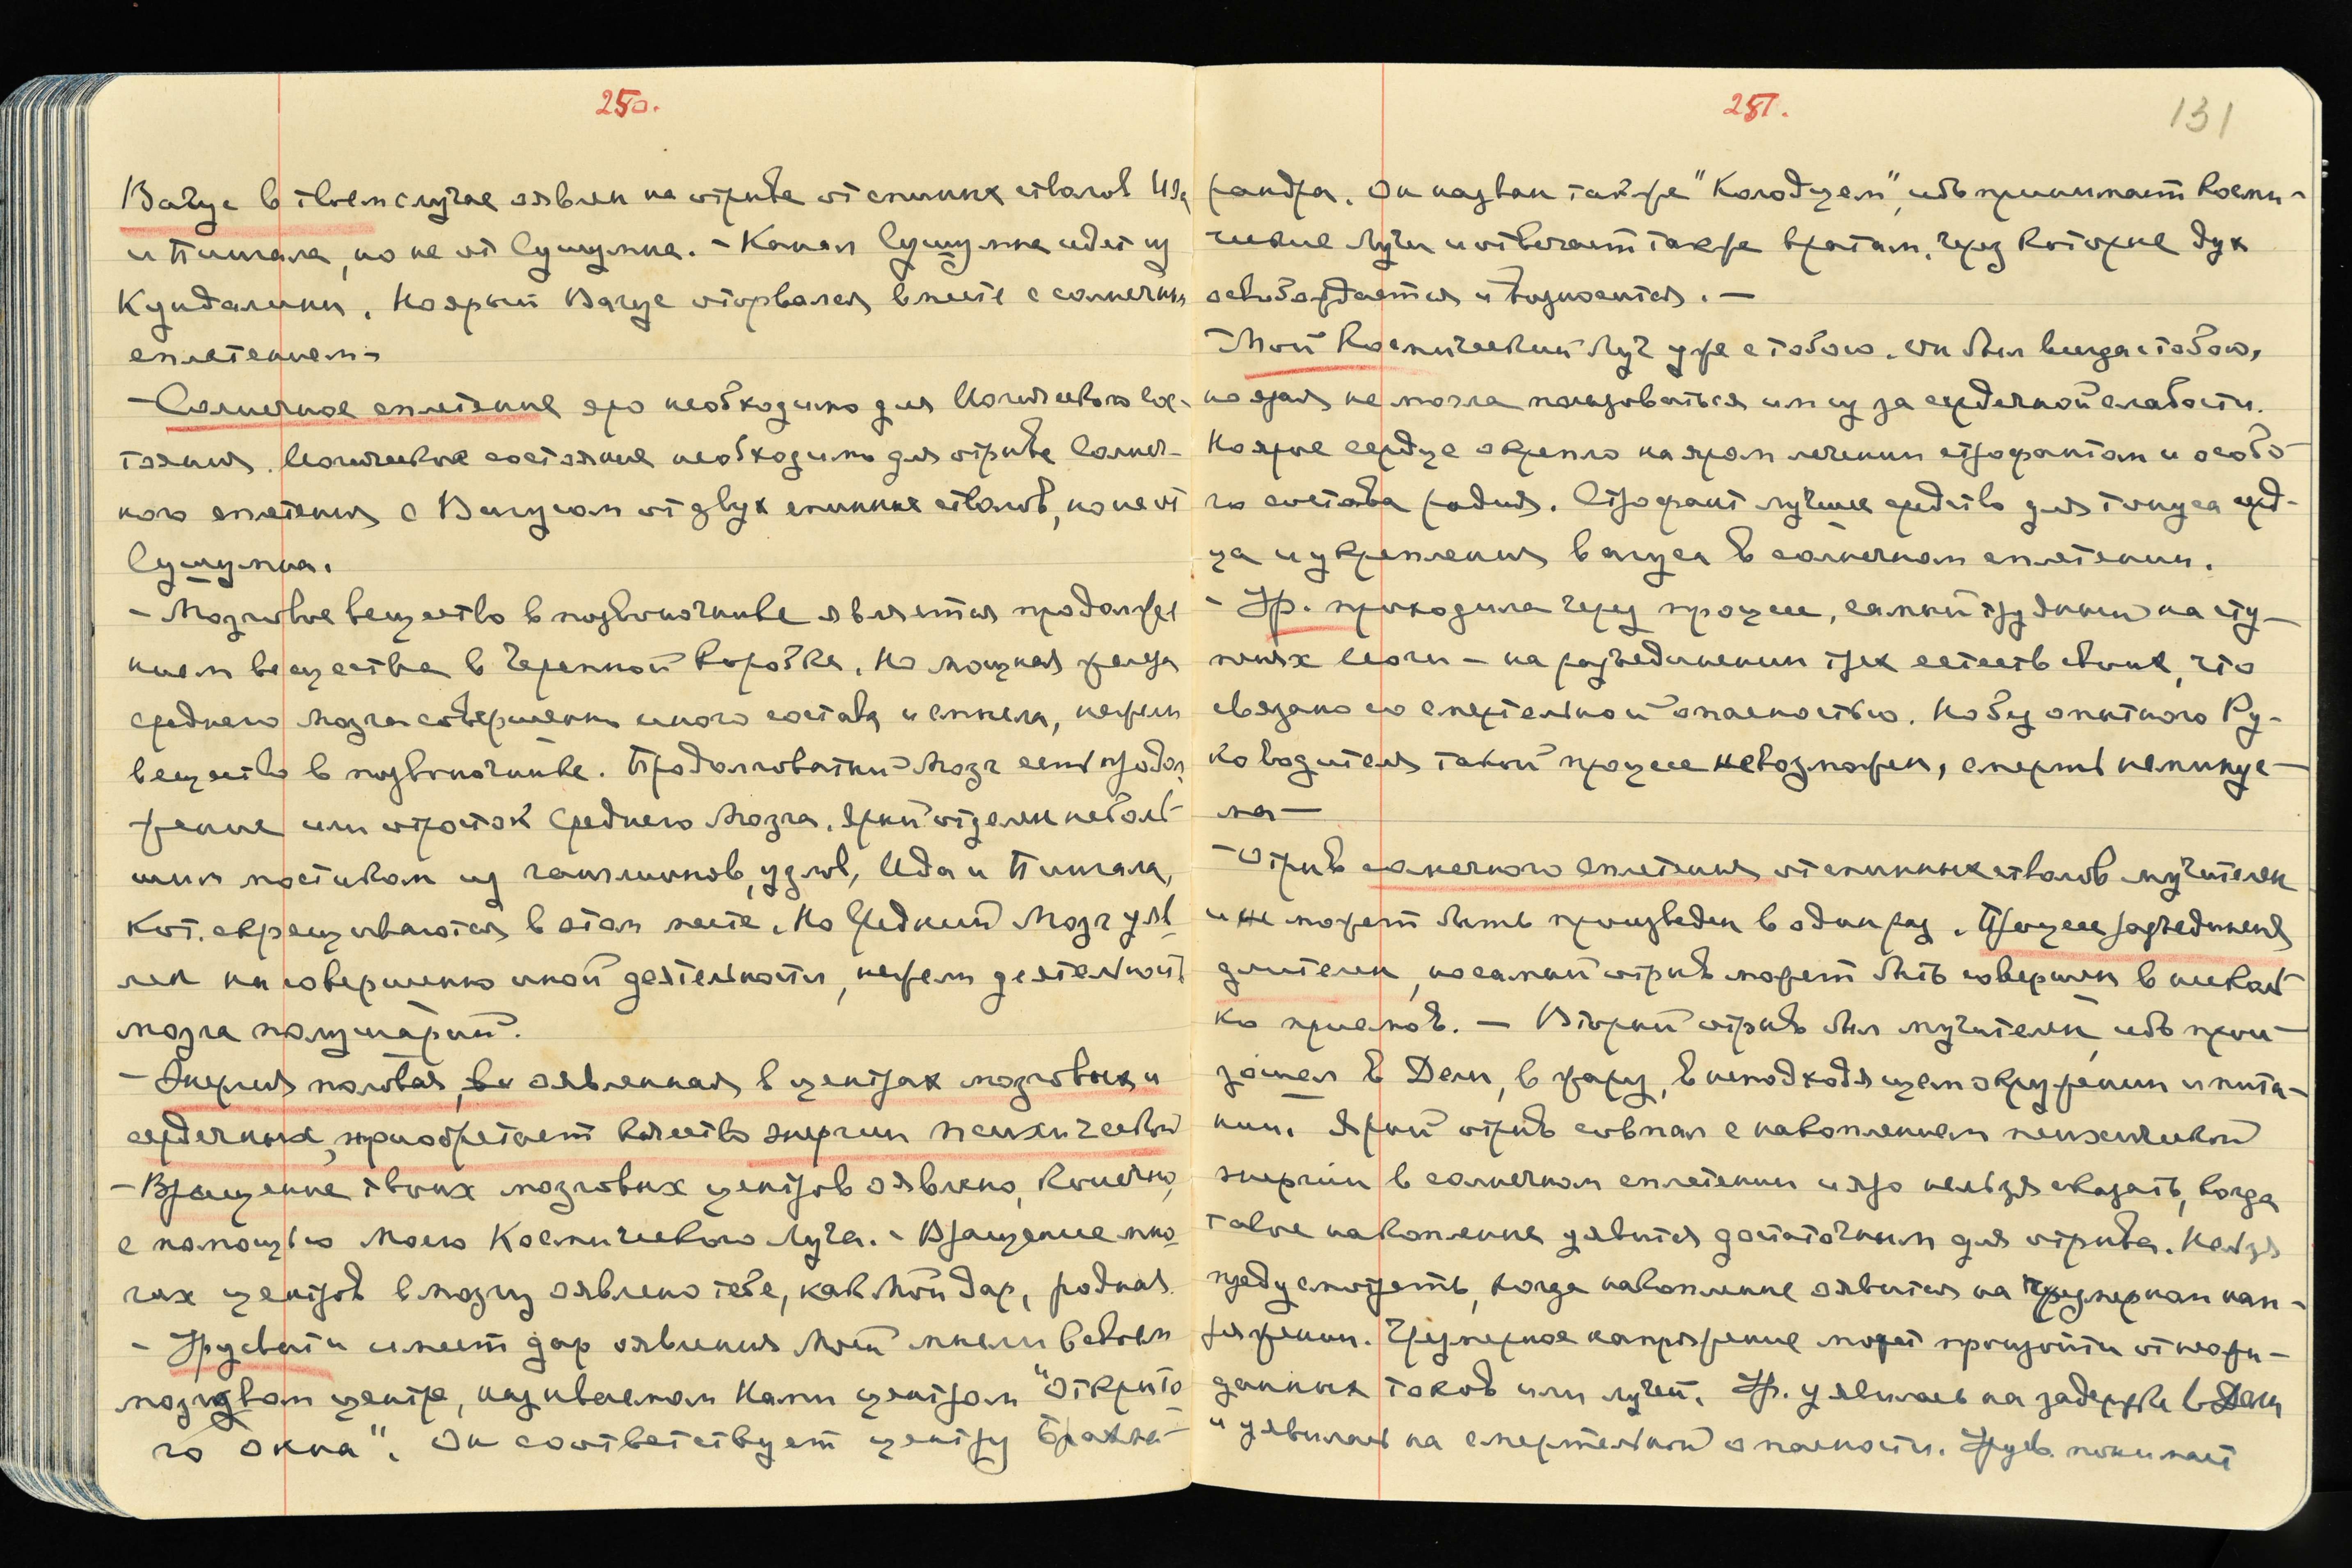 250.
Вагус в твоем случае оявлен на отрыве от спинных стволов Ида
и Пингала, но не от Сушумна. - Канал Сушумна идет из
Кундалини. Но ярый Вагус оторвался вместе с солнечным
сплетением -
- Солнечное сплетение яро необходимо для Йогического сос-
тояния. Йогическое состояние необходимо для отрыва Солнеч-
ного сплетения с Вагусом от двух спинных стволов, но не от
Сушумна.
- Мозговое вещество в позвоночнике является продолже-
нием вещества в черепной коробке. Но мощная железа
среднего мозга совершенно иного состава и смысла, нежели
вещество в позвоночнике. Продолговатый Мозг есть продол-
жение или отросток Среднего Мозга. Ярый отделен неболь-
шим мостиком из ганглионов, узлов, Ида и Пингала,
кот. скрещиваются в этом месте. Но Средний Мозг уяв-
лен на совершенно иной деятельности, нежели деятельность
мозга полушарий.
- Энергия половая, оявленная в центрах мозговых и
сердечных, приобретает качество энергии психической
- Вращение твоих мозговых центров оявлено, конечно,
с помощью Моего Космического Луча. - Вращение мно-
гих центров в мозгу оявлено тебе, как Мой Дар, родная.
- Урусвати имеет дар оявления Моей мысли в своем
мозговом центре, называемом Нами центром "Открыто-
го окна". Он соответствует центру Брахма-
251.
131
рандра. Он назван также "Колодцем", ибо принимает Косми-
ческие Лучи и отвечает также вратам, через которые дух
освобождается и возносится. -
- Мой Космический Луч уже с тобою. Он был всегда с тобою,
но ярая не могла пользоваться им из за сердечной слабости.
Но ярое сердце окрепло на яром лечении строфантом и особо-
го состава радия. Строфант лучшее средство для тонуса серд-
ца и укрепления вагуса в солнечном сплетении.
- Ур. проходила через процесс, самый трудный на сту-
пенях Йоги - на разъединении трех естеств своих, что
связано со смертельной опасностью. Но без опытного Ру-
ководителя такой процесс невозможен, смерть неминуе-
ма -
- Отрыв солнечного сплетения от спинных стволов мучителен
и не может быть произведен в один раз. Процесс разъединения
длителен, но самый отрыв может быть совершен в несколь-
ко приемов. - Вторый отрыв был мучителен, ибо прои-
зошел в Дели, в жару, в неподходящем окружении и пита-
нии. Ярый отрыв совпал с накоплением психической
энергии в солнечном сплетении и яро нельзя сказать, когда
такое накопление уявится достаточным для отрыва. Нельзя
предусмотреть, когда накопление оявится на чрезмерном нап-
ряжении. Чрезмерное напряжение может произойти от неожи-
данных токов или лучей. Ур. уявилась на задержке в Дели
и уявилась на смертельной опасности. Урусв. понимает